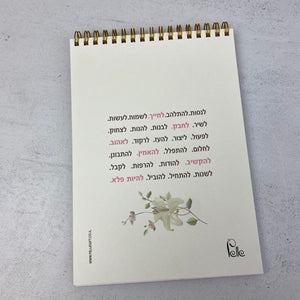 לנסות.להתלהב.לחייך.לשמוח.לעשות.
לשיר. לחבק. לבנות. להנות. לצחוק.
לפעול. ליצור. להעז. לרקוד. לאהוב.
לחלום. להתפלל. להאמין. להתבונן.
להקשיב. להודות. להרפות. לקבל.
לשנות. להתחיל. להוביל. להיות פלא.
Pelle